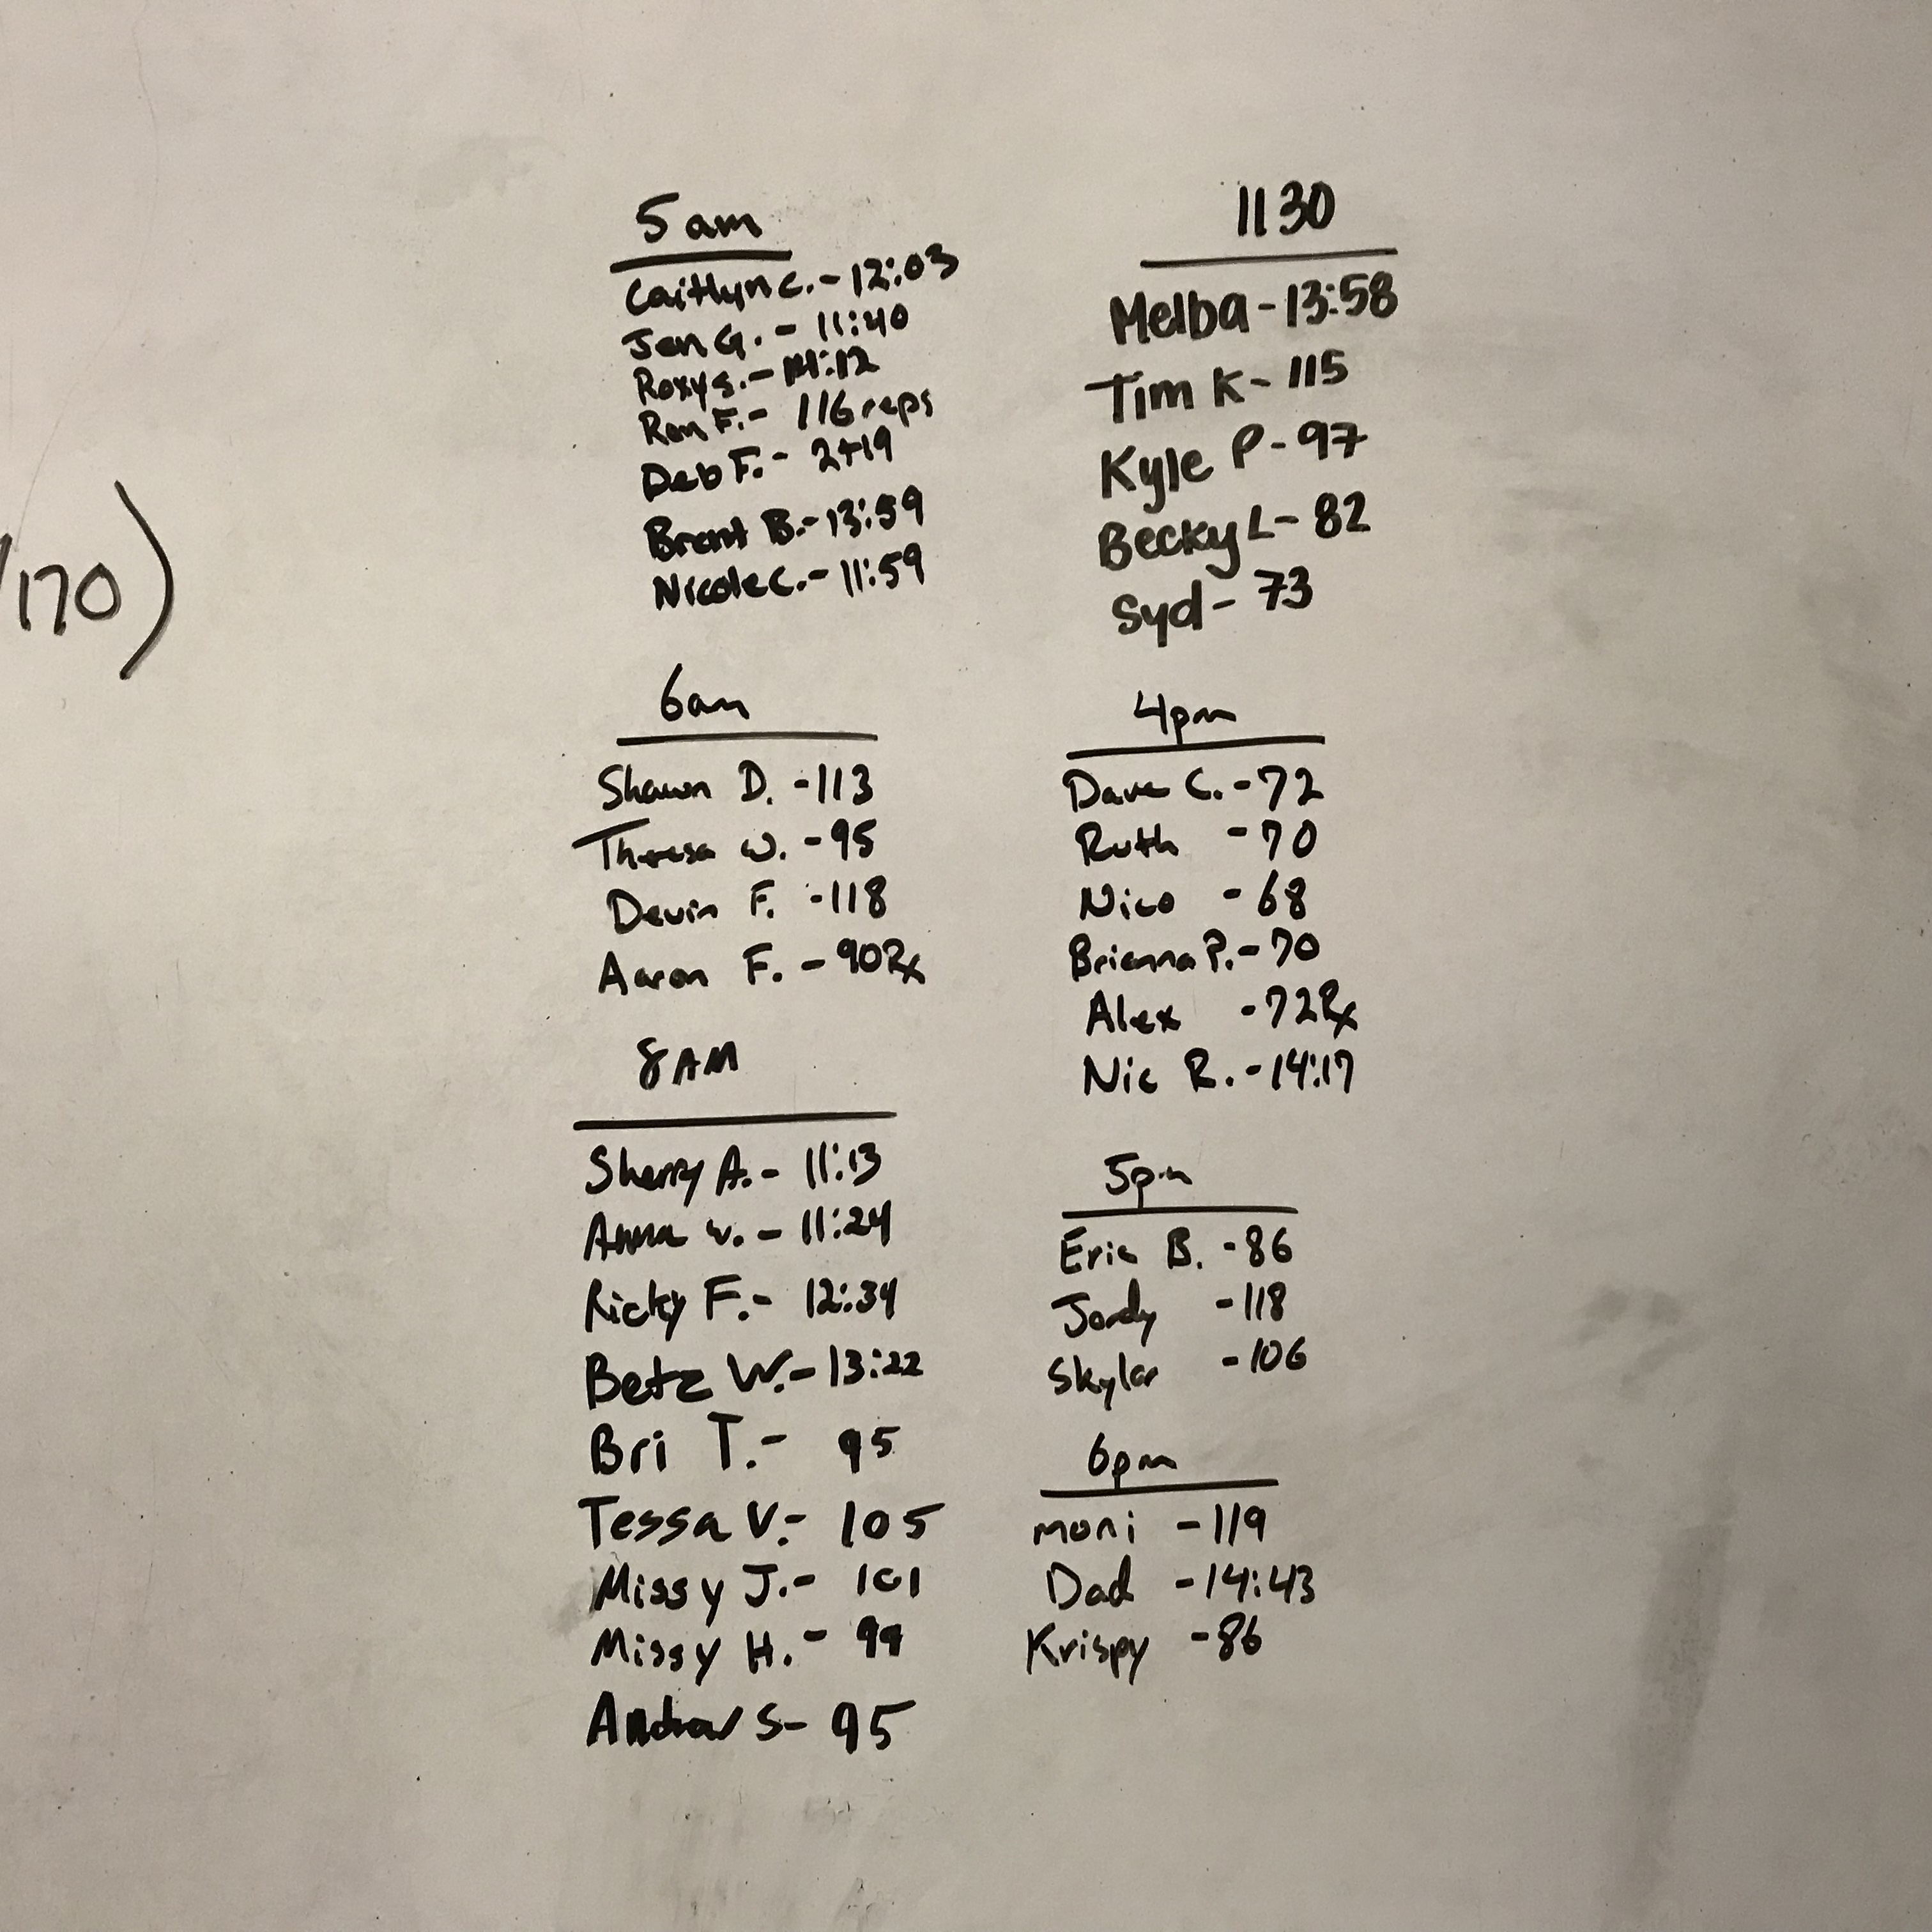 /170)
5am
Caitlyn C. - 12:03
Jen G. - 11:40
Roxy S. - 14:12
Ron F. - 116 reps
Deb F. - 2+19
Brent B. - 13:59
Nicole C. - 11:59
6am
Shawn D. - 113
Theresa W. - 95
Devin F. - 118
Aaron F. - 90Rx
8AM
Sherry A. - 11:13
Anna W. - 11:24
Ricky F. - 12:34
Betz W. - 13:22
Bri T. - 95
Tessa V. - 105
Missy J. - 101
Missy H. - 99
Andrew S - 95
1130
Melba - 13:58
Tim K - 115
Kyle P - 97
Becky L - 82
Syd - 73
4pm
Dave C. - 72
Ruth - 70
Nico - 68
Brianna P. - 70
Alex - 72Rx
Nic R. - 14:17
5pm
Eric B. - 86
Jordy - 118
Skylar - 106
6pm
moni - 119
Dad - 14:43
Krispy - 86